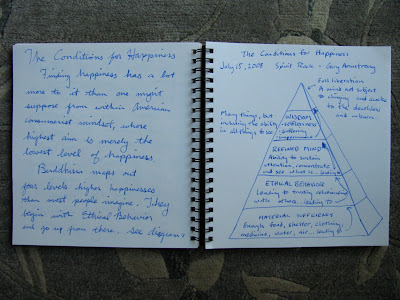 The Conditions for Happiness
Finding happiness has a lot
more to it than one might
suppose from within American
consumerist mindset, whose
highest aim is merely the
lowest level of happiness.
Buddhism maps out
four levels higher happinesses
than most people imagine. They
begin with Ethical Behavior
and go up from there. See diagram:
The Conditions for Happiness
July 15, 2008 Spirit Rock - Guy Armstrong
Full liberation
A mind not subject
to clinging and awake
to the deathless
and unborn
Many things, but
including the ability
in all things to see
WISDOM
suffering
REFINED MIND
Ability to sustain
attention, concentrate,
and see what is leading to
ETHICAL BEHAVIOR
Leading to trusting relationship
with others leading to
MATERIAL SUFFICIENCY
Enough food, shelter, clothing,
medicine, water, air... leading to